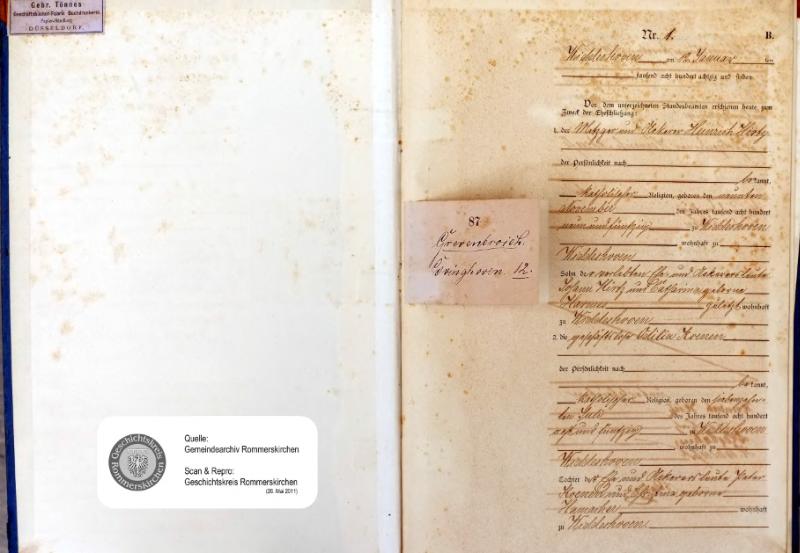 Gebr. Tönnes
Geschäftsbücher-Fabrik Buchdruckerei
Papier-Handlung
DÜSSELDORF.
Quelle:
Gemeindearchiv Rommerskirchen
Scan & Repro:
Geschichtskreis Rommerskirchen
(26. Mai 2011)
Geschichtskreis
Rommerskirchen
87
Grevenbroich.
12.
Nr. 1.
B.
Widdeshoven am 12. Januar
tausend acht hundert achtzig und sieben
Vor dem unterzeichneten Standesbeamten erschienen heute zum
Zweck der Eheschließung:
1. der Metzger und Ackerer Heinrich Hirtz
der Persönlichkeit nach
kannt,
katholischer Religion, geboren den neunten
November des Jahres tausend acht hundert
neun und fünfzig zu Widdeshoven
wohnhaft zu
Widdeshoven
Sohn der verlebten Ehe- und Ackersleute
Johann Hirtz und Catharina geborne
zuletzt wohnhaft
zu Widdeshoven
2. die geschäftslose Odilia Koenen
der Persönlichkeit nach
kannt,
katholischer Religion, geboren den siebenzehn-
ten Juli des Jahres tausend acht hundert
acht und fünfzig zu Widdeshoven
wohnhaft zu
Widdeshoven
Tochter der Ehe- und Ackersleute Peter
Koenen und geborne
Hamacher wohnhaft
zu Widdeshoven